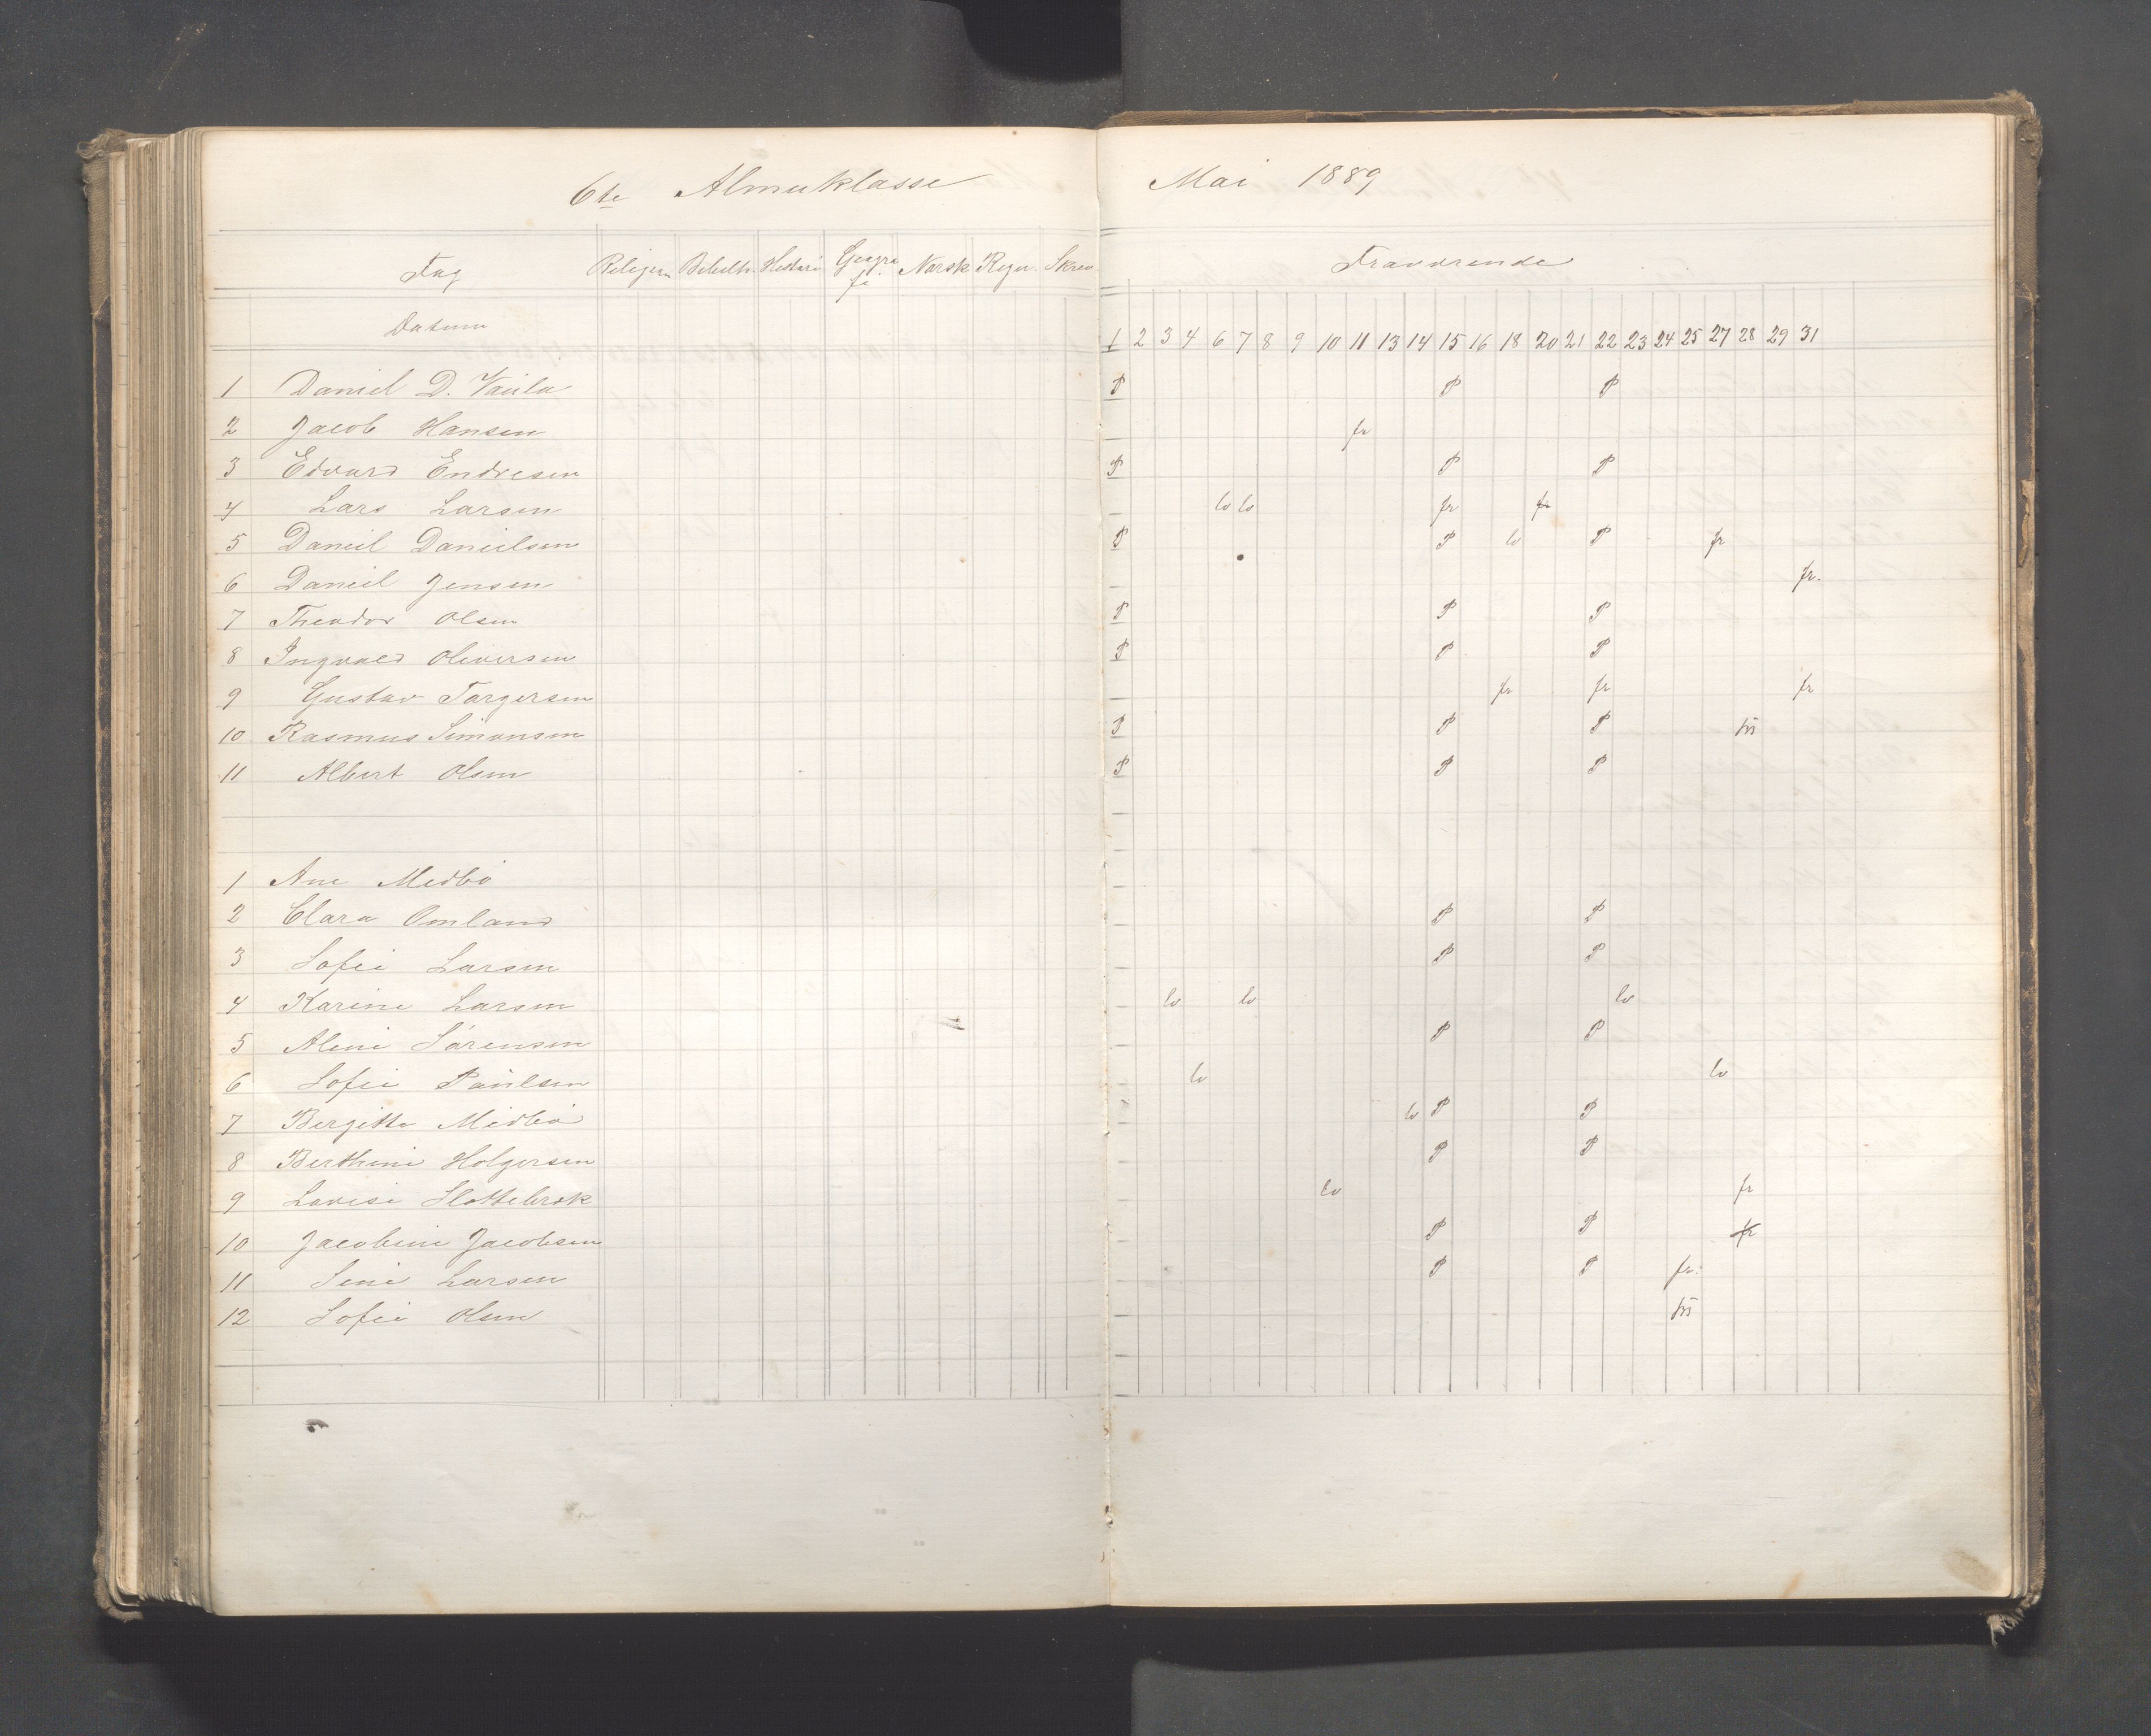 6te Almueklasse Mai 1889
Fag Religion Bibelh. Historie Geografi Norsk Regn. Skrev. Fraværende
Datum 1 2 3 4 6 7 8 9 10 11 13 14 15 16 18 20 21 22 23 24 25 27 28 29 31
1 Daniel D. Vaula P P P
2 Jacob Hansen fr
3 Edvard Endresen P P P
4 Lars Larsen lo lo fr fr
5 Daniel Danielsen P P lo P fr
6 Daniel Jensen fr.
7 Theodor Olsen P P P
8 Ingvald Oliversen P P P
9 Gustav Torgersen fr fr fr
10 Rasmus Simonsen P P P
11 Albert Olsen P P P
1 Ane Medbö
2 Clara Omland P P
3 Sofie Larsen P P
4 Karine Larsen lo lo lo
5 Aline Sörensen P P
6 Sofie Paulsen lo lo
7 Bergitte Midbö lo P P
8 Berthine Holgersen P P
9 Lovise Slottebrok lo fr
10 Jacobine Jacobsen P P fr
11 Sine Larsen P P fr.
12 Sofie Olsen